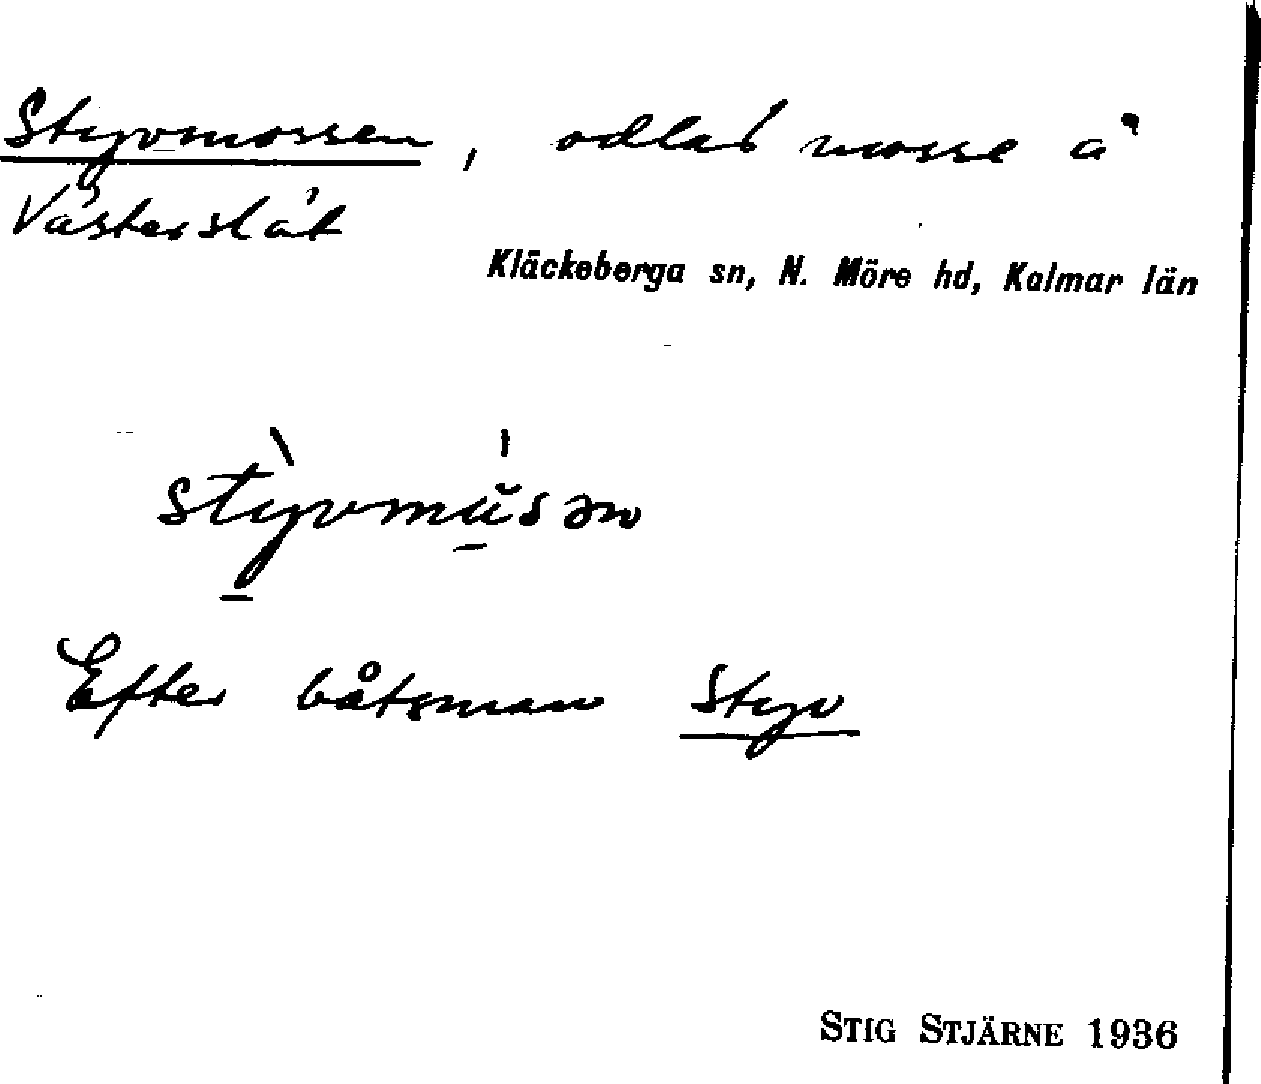 Styvmossen, odlad mosse å
Västerslät
Kläckeberga sn, N. Möre hd, Kalmar län
Efter båtsman Styv
STIG STJÄRNE 1936